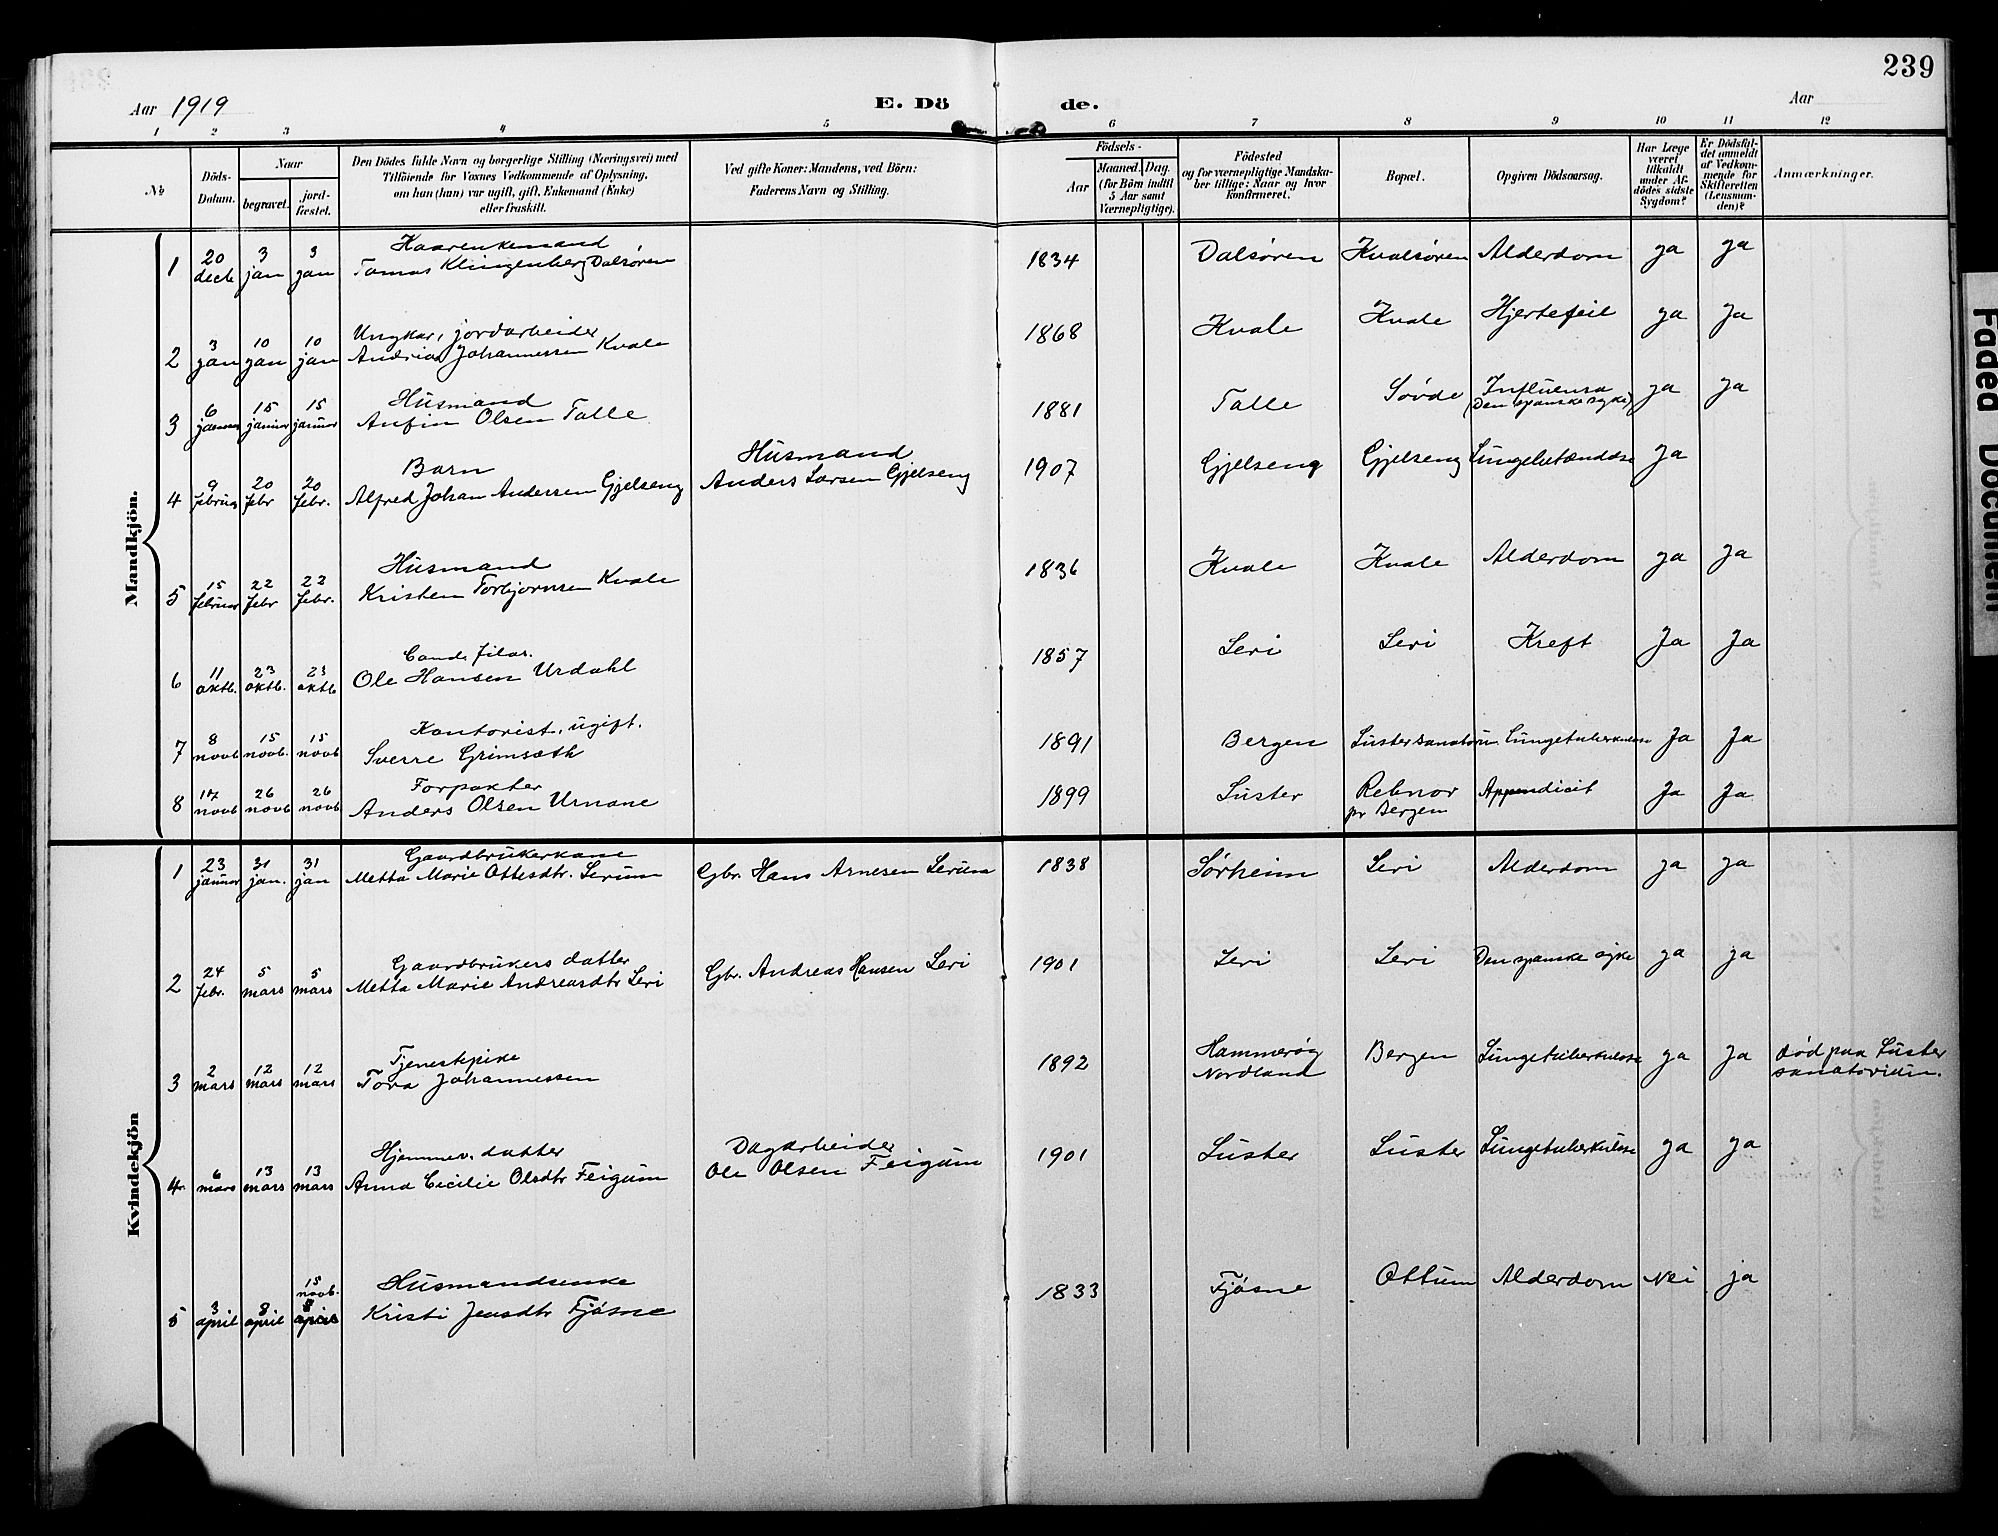 239
Aar 1919
E. Dö de.
Aar
1 2 3 4 5 6 7 8 9 10 11 12
No
Döds-Datum.
Naar
begravet.
jord-fæstet.
Den Dödes fulde Navn og borgerlige Stilling (Næringsvei) med
Tilföiende for Voxnes Vedkommende af Oplysning,
om han (hun) var ugift, gift, Enkemand (Enke)
eller fraskilt.
Ved gifte Koner: Mandens, ved Börn:
Faderens Navn og Stilling.
Födsels-
Aar
Maaned. Dag.
(for Börn indtil
5 Aar samt
Værnepligtige).
Födested
og for værnepligtige Mandska-
ber tillige: Naar og hvor
konfirmeret.
Bopæl.
Opgiven Dödsaarsag.
Har Læge
været
tilkaldt
under Af-
dödes sidste
Sygdom?
Er Dödsfal-
det anmeldt
af Vedkom-
mende for
Skifteretten
(Lensman-
den)?
Anmærkninger.
Mandkjön.
1 20 decb 3 jan 3 jan Kaarenkemand
Tomas Klingenberg Dalsøren 1834 Dalsøren Kvalsøren Alderdom ja ja
2 3 jan 10 jan 10 jan Ungkar, jordarbeider
Andrias Johannessen Kvale 1868 Kvale Kvale Hjertefeil ja ja
3 6 januar 15 januar 15 januar Husmand
Anfin Olsen Talle 1881 Talle Søvde Influensa
(Den spanske syke) ja ja
4 9 februar 20 febr 20 febr. Barn
Alfred Johan Andersen Gjelseng Husmand
Anders Larsen Gjelseng 1907 Gjelseng Gjelseng Lungebetændelse ja
5 15 februar 22 febr 22 febr. Husmand
Kristen Torbjørnsen Kvale 1836 Kvale Kvale Alderdom ja ja
6 11 oktb. 23 oktb. 23 oktb Cand. filos.
Ole Hansen Urdahl 1857 Leri Leri Kreft Ja Ja
7 8 novb 15 novb. 15 novb Kontorist, ugift.
Sverre Grimsæth 1891 Bergen Luster sanatorium Lungetuberkulose Ja Ja
8 17 novb 26 novb 26 novb Forpakter
Anders Olsen Urnæne 1899 Luster Rebnor
pr Bergen Appendicit Ja Ja
Kvindekjön
1 23 januar 31 jan. 31 jan Gaardbrukerkone
Metta Marie Ottesdtr. Lerum Gbr. Hans Arnesen Lerum 1838 Sørheim Leri Alderdom ja ja
2 24 febr. 5 mars 5 mars Gaardbrukers datter
Metta Marie Andreasdtr Leri Gbr. Andreas Hansen Leri 1901 Leri Leri Den spanske syke ja ja
3 2 mars 12 mars 12 mars Tjenestepike
Tora Johannessen 1892 Hammerøy
Nordland Bergen Lungetuberkulose ja ja død paa Luster
sanatorium.
4 6 mars 13 mars 13 mars Hjemmev. datter
Anna Cecilie Olsdtr Feigum Dagarbeider
Ole Olsen Feigum 1901 Luster Luster Lungetuberkulose ja ja
5 3 april 8 april 15 novb. 8 april Husmandsenke
Kristi Jensdtr Fjøsne 1833 Fjøsne Ottum Alderdom Nei ja
Faded Document